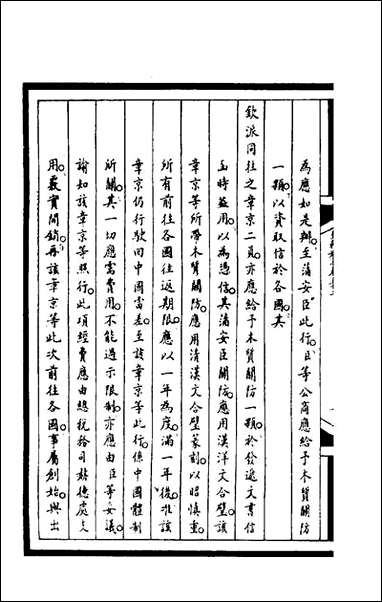 為應如是辦至蒲安臣此行臣等公商應給予木質關防
一顆以資取信於各國其
欽派同往之章京二員亦應給予木質關防一顆於發遞文書信
函時蓋用以為憑信其蒲安臣關防應用漢洋文合璧該
章京等所帶木質關防應用清漢文合璧篆刻以昭慎重
所有前往各國往返期限應以一年為度滿一年後准該
章京仍行駛回中國當差至該章京等此行係中國體制
所關其一切應需費用不能過示限制亦應由臣等妥議
諭知該章京等照行此項經費應由總稅務司赫德處支
用覈實開銷再該章京等此次前往各國事屬創始與出